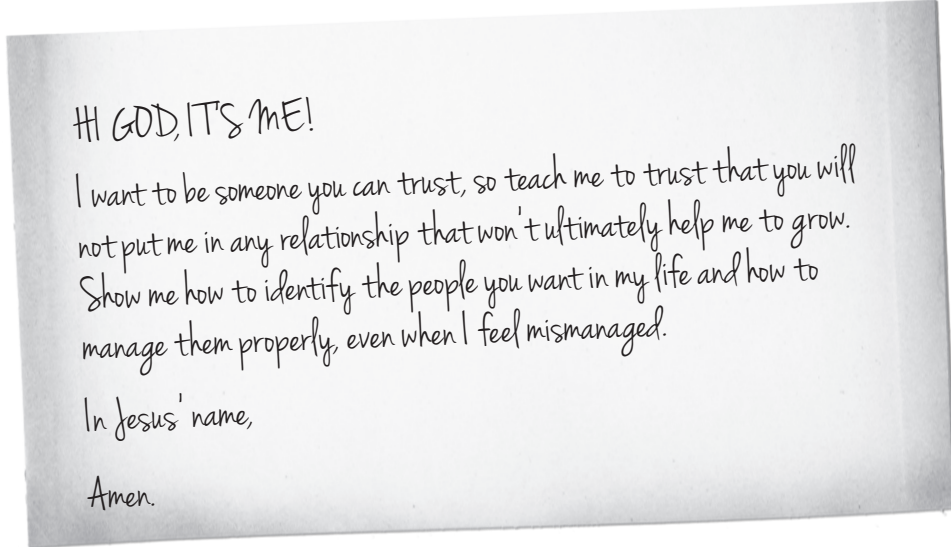 HI GOD, IT'S ME!
I want to be someone you can trust, so teach me to trust that you will
not put me in any relationship that won't ultimately help me to grow.
Show me how to identify the people you want in my life and how to
manage them properly, even when I feel mismanaged.
In Jesus' name,
Amen.